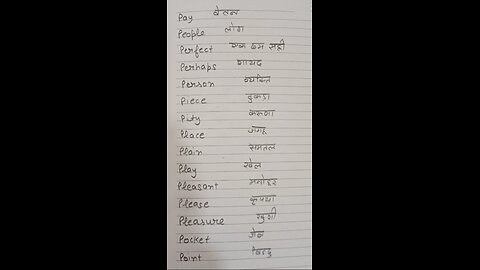 Pay वेतन
People लोग
Perfect एक दम सही
Perhaps शायद
Person व्यक्ति
Piece टुकडा
Pity करूणा
Place जगह
Plain समतल
Play खेल
Pleasant मनोहर
Please कृपया
Pleasure खुशी
Pocket जेब
Point बिन्दु